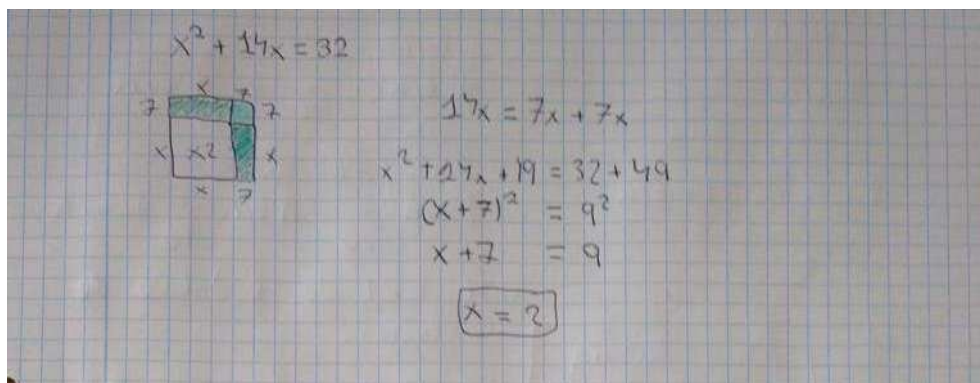 x² + 14x = 32
x 7
7 7
x x2 x
x 7
14x = 7x + 7x
x² + 14x + 49 = 32 + 49
(x + 7)² = 9²
x + 7 = 9
x = 2